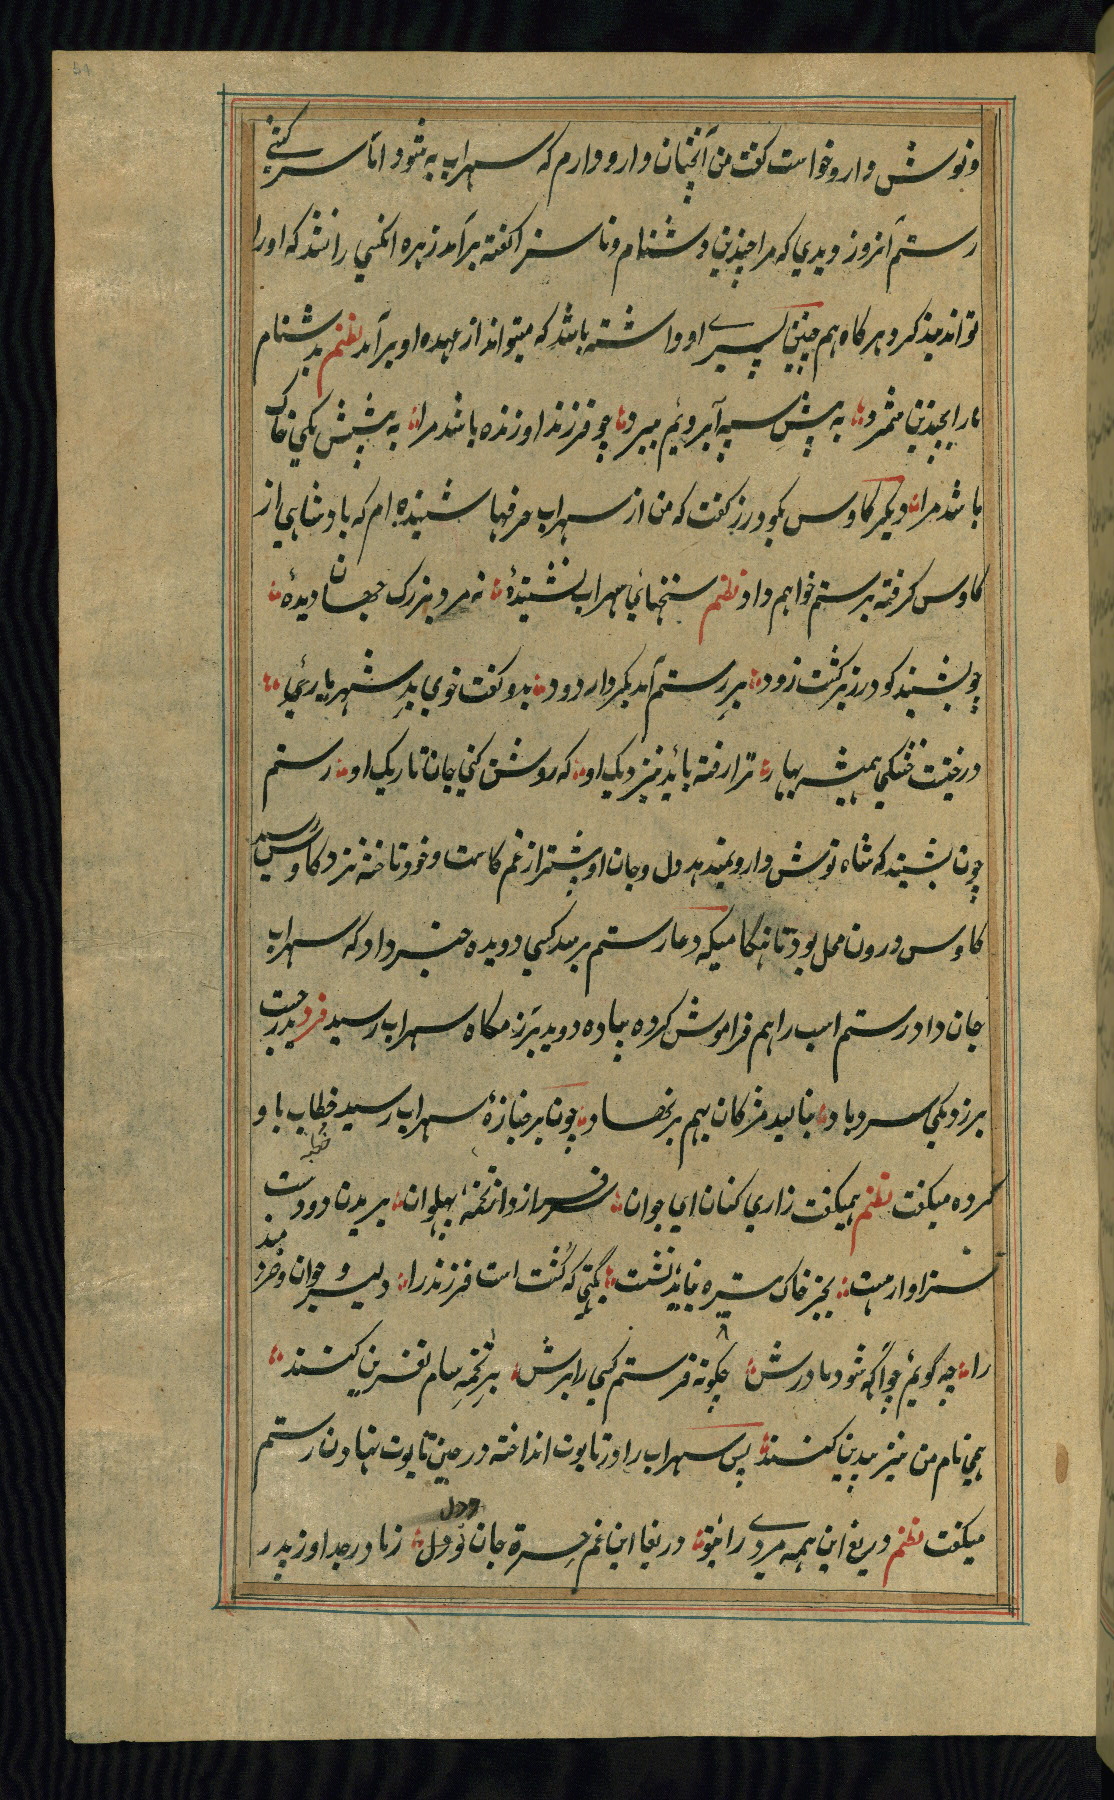 ونوش دارو خواست گفت من آنچنان دارو دارم که سهراب به شود اما سرکشی
رستم آنروز دیدی که مرا چندین دشنام و ناسزا گفته برآمد زهره انکسی رانند که اورا
تواند میذکرد هرگاه هم چنین پسرے او داشته باشد که میتواند از عهده او برآمد نظم بدشنام
مارا بچندین شمرد به پیش سپه آبرویم ببرد چو فرزند او زنده باشد مرا به پیشش یکی خاک
باشد مرا دیگر کاوس بگودرز گفت که من از سهراب حرفها شنیده ام که پادشاهی از
کاوس گرفته برستم خواهم داد نظم سخنهائی سهراب نشنیدۀ نه مرد بزرگ جهان دیدۀ
چو بشنید گودرز برگشت زود برِ رستم آمد بکردار دود بدو گفت خوی بدِ شهریارئی
درختیست خنکی همیشه ببار ترا رفته باید بنزدیک او که روشن کنی جان تاریک او رستم
چون بشنید که شاه نوش دارو نمیدهد دل و جان او پشتر از غم کاست و خود تاخته نزد کاوس رسید
کاوس درون محل بود تا هنگامیکه دعا رستم برسد کسی دویده خبر داد که سهراب
جان داد رستم اسپ را هم فراموش کرده پیاده دوید برزمگاه سهراب رسید فرد پدر جست
برزد یکی سرد باد بنالید مژگان بهم برنهاد چون بر جنازۀ سهراب رسید خطاب باو
کرده میگفت نظم همیگفت زاری کنان ای جوان سرفراز و از تخمۀ پهلوان بریدن دو دست
سزاوار هست بجز خاک تیره نباید نشست بگیتی که کُشت است فرزند را دلیر و جوان و خردمند
را چه گویم چو آگه شود مادرش چگونه فرستم کسی را برش برِ تخمهِ سام نفرین کنند
همی نام من نیز بیدین کنند پس سهراب را در تابوت انداخته در حین تابوت نهادن رستم
میگفت نظم دریغ این همه مردے رای تو دریغا این غم حسرة جان و دل زمادر جدا وز پدر